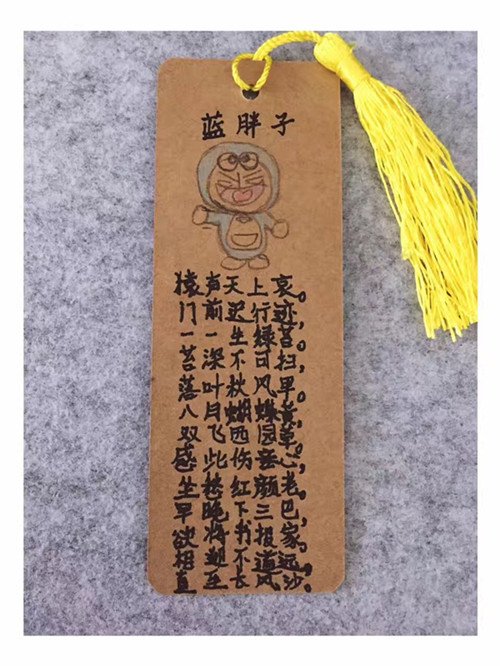 蓝胖子
猿声天上哀。
门前迟行迹,
一一生绿苔。
苔深不可扫,
落叶秋风早。
八月蝴蝶黄,
双飞西园草。
感此伤妾心,
坐愁红颜老。
早晚下三巴,
欲将书报家。
相迎不道远,
直至长风沙。